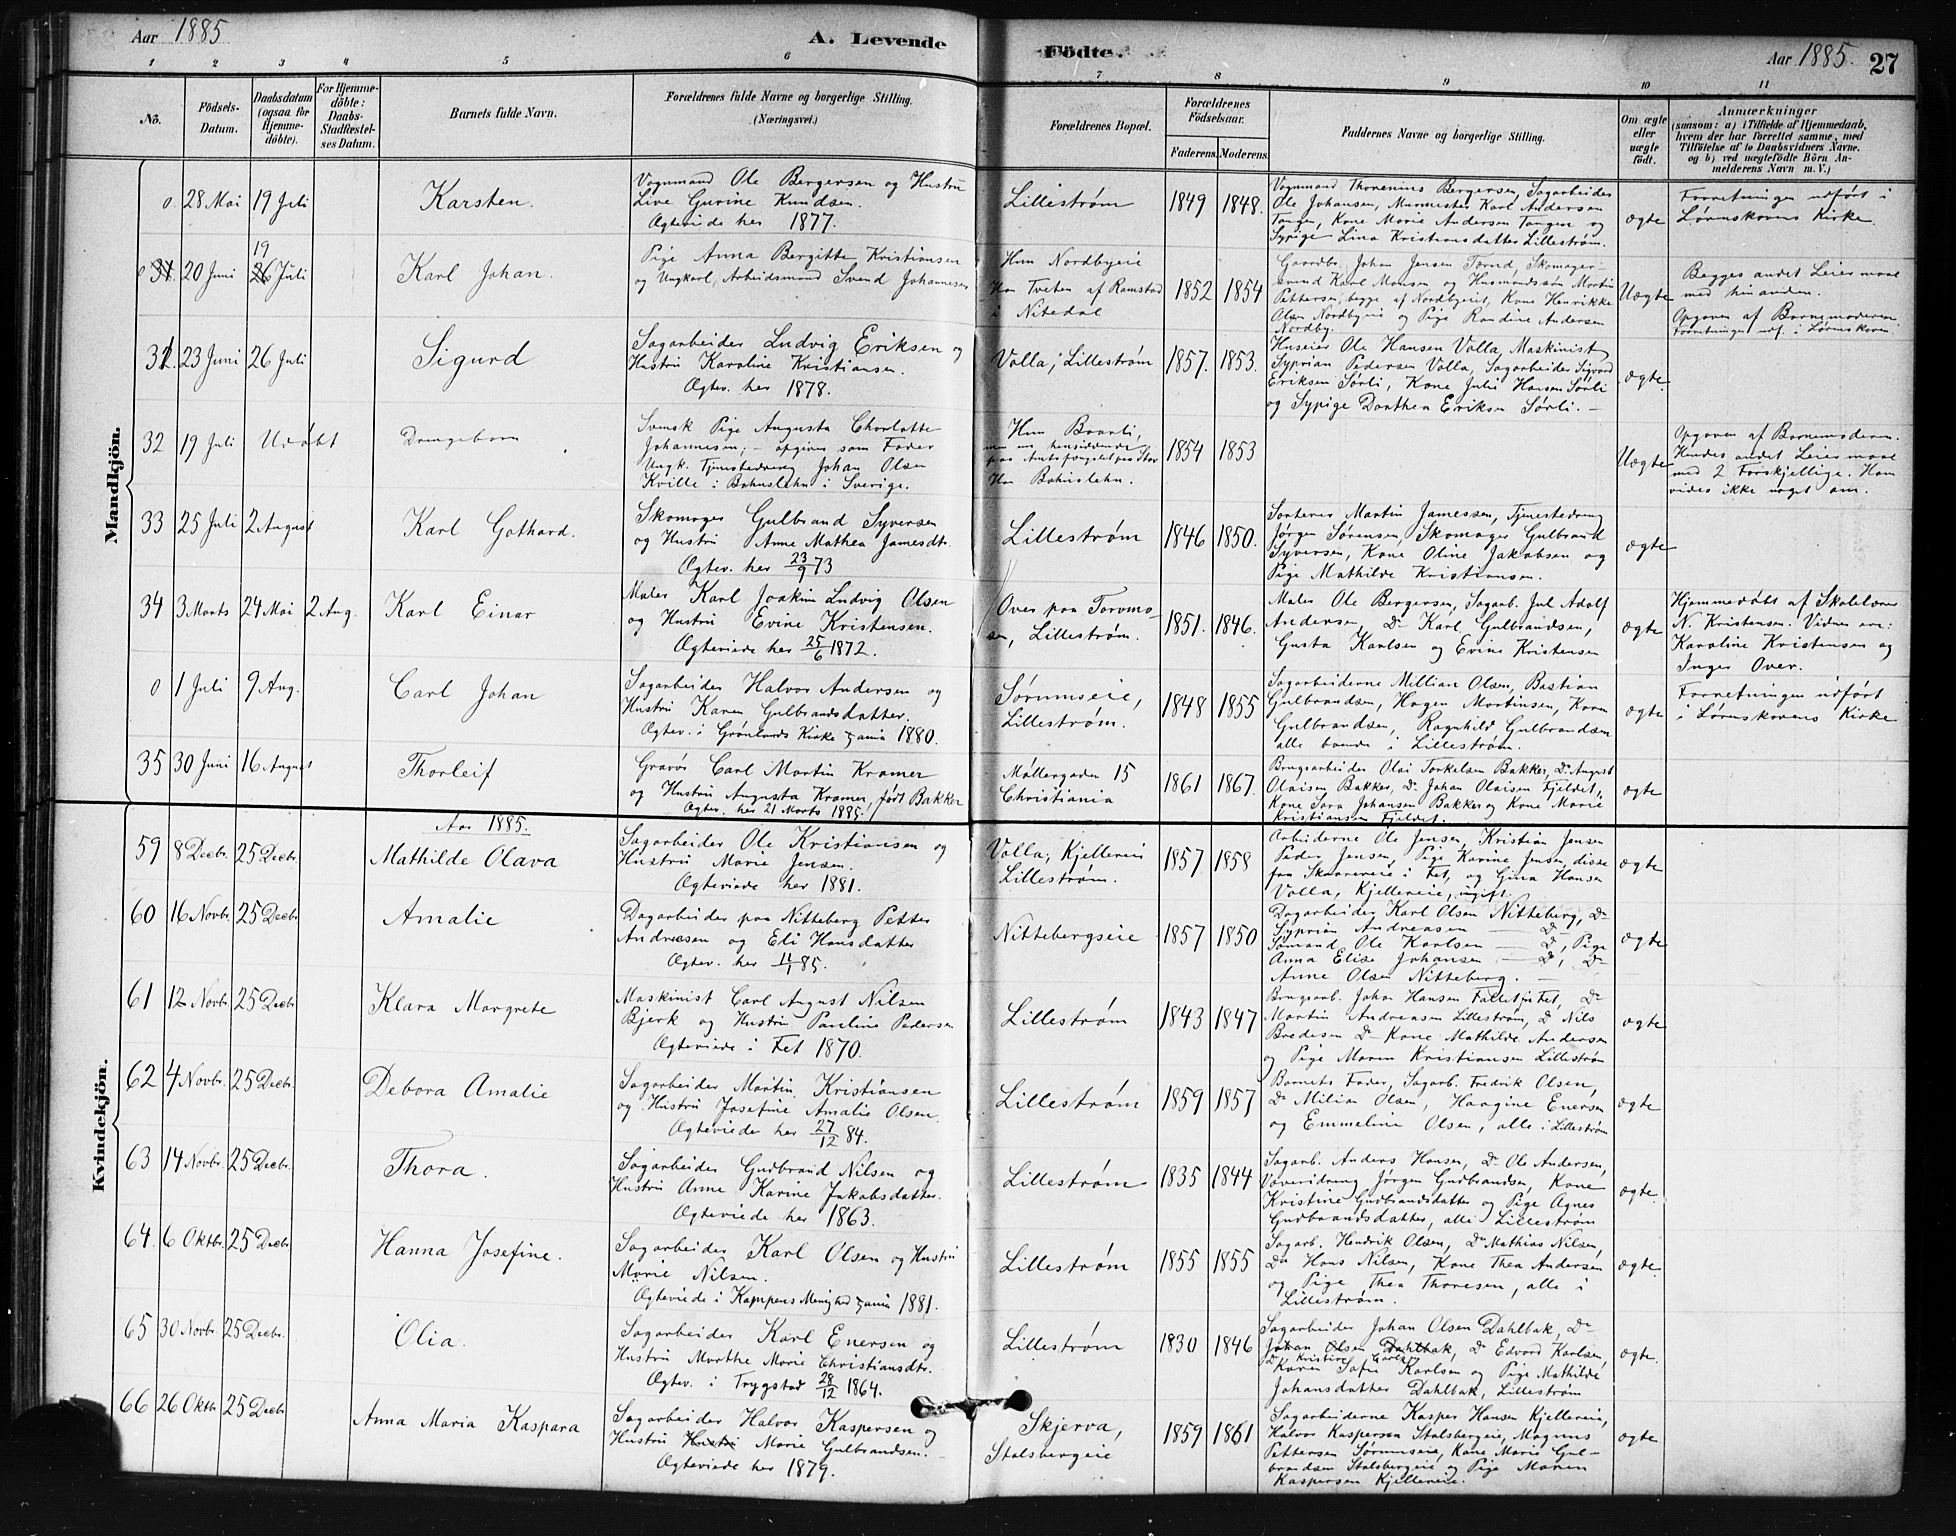 Aar 1885
A. Levende Födte.
Aar 1885. 27
1 2 3 4 5 6 7 8 9 10 11
No.
Födsels-Datum.
Daabsdatum (ogsaa for Hjemme-döbte).
For Hjemme-döbte: Daabs-Stadfæstel-ses Datum.
Barnets fulde Navn.
Forældrenes fulde Navne og borgerlige Stilling.
(Næringsvei.)
Forældrenes Bopæl.
Forældrenes Födselsaar.
Faderens. Moderens.
Faddernes Navne og borgerlige Stilling.
Om ægte eller uægte födt.
Anmærkninger
(saasom: a) i Tilfælde af Hjemmedaab,
hvem der har forrettet samme, med
Tilföielse af to Daabsvidners Navne.
og b) ved uægtefödte Börn An-
melderens Navn m. V.)
Mandkjön.
0. 28 Mai 19 Juli
Karsten.
Vognmand Ole Bergersen og Hustru
Live Gurine Knudsen.
Ægteviede her 1877.
Lillestrøm
1849 1848.
Vognmand Thorenius Bergersen, Sagarbeider
Ole Johansen, Murmester Karl Andersen
Tangen, Kone Marie Andersen Tangen og
Sypige Lina Kristiansdatter Lillestrøm.
ægte
Forretningen udført i
Lørenskovens Kirke
0 31 20 Juni 19 26 Juli
Karl Johan.
Pige Anna Bergitte Kristiansen
og Ungkarl, Arbeidsmand Svend Johannesen
Hun Nordbyeie
Han Tveten af Ramstad
i Nitedal
1852 1854
Gaardbr. Johan Jensen Tornd, Skomager-
svend Karl Monsen og Husmandssøn Martin
Pettersen, begge af Nordbyeiet, Kone Henrikke
Olsen Nordbyeie og Pige Randine Andersen
Nordby.
Uægte
Begges andet Leiermaal
med hinanden.
Opgiven af Barnemoderen
Forretningen udf. i Lørenskoven.
31. 23 Juni 26 Juli
Sigurd
Sagarbeider Ludvig Eriksen og
Hustru Karoline Kristiansen.
Ægtev. her 1878.
Volla, Lillestrøm
1857. 1853.
Huseier Ole Hansen Volla, Maskinist
Syprian Pedersen Volla, Sagarbeider Sigvard
Eriksen Sørli, Kone Julie Hansen Sørli
og Sypige Dorthea Eriksen Sørli. –
ægte.
32 19 Juli Udøbt
Drengebarn
Svensk Pige Augusta Charlotte
Johannesen; – opgiver som Fader
Ungk. Tjenestedreng Johan Olsen
Kville i Bahuslehn i Sverige.
Hun Braarli,
Han Bahuslehn.
1854 1853
Uægte
Opgiven af Barnemoderen.
Hendes andet Leiermaal
med 2 Forskjellige. Ham
vides ikke noget om.
33 25 Juli 2 August
Karl Gothard.
Skomager Gulbrand Syversen
og Hustru Anne Mathea Jamesdt.
Ægtev. her 23/9 73
Lillestrøm
1846 1850.
Sorterer Martin Jamessen, Tjenestedreng
Jørgen Sørensen, Skomager Gulbrand
Syversen, Kone Oline Jakobsen og
Pige Mathilde Kristiansen.
ægte
34 3 Marts 24 Mai 2 Aug.
Karl Einar
Maler Karl Joakim Ludvig Olsen
og Hustru Evine Kristensen.
Ægteviede her 25/6 1872.
Over paa Torvmo-
sen, Lillestrøm.
1851. 1846.
Maler Ole Bergersen, Sagarb. Jul Adolf
Andersen, Do Karl Gulbrandsen,
Gusta Karlsen og Evine Kristensen
ægte
Hjemmedøbt af Skolelærer
N. Kristensen. Vidner ere:
Karoline Kristensen og
Inger Over.
0 1 Juli 9 Aug.
Carl Johan
Sagarbeider Halvor Andersen og
Hustru Karen Gulbrandsdatter.
Ægtev. i Grønlands Kirke Xania 1880.
Sørumseie,
Lillestrøm.
1848 1855
Sagarbeiderne Millian Olsen, Bastian
Gulbrandsen, Hagen Martinsen, Karen
Gulbrandsen, Ragnhild Gulbrandsen
alle boende i Lillestrøm.
ægte
Forretningen udført
i Lørenskovens Kirke
35 30 Juni 16 August
Thorleif
Gravør Carl Martin Kramer
og Hustru Augusta Kramer, født Bakker
Ægtev. her 21 Marts 1885.
Møllergaden 15
Christiania
1861 1867.
Brugsarbeider Olai Torkelsen Bakker, Do August
Olaisen Bakker, Do Johan Olaisen Fjeldet,
Kone Sara Johansen Bakker og Kone Marie
Kristiansen Fjeldet.
ægte
Kvindekjön.
Aar 1885.
59 8 Decbr. 25 Decbr.
Mathilde Olava
Sagarbeider Ole Kristiansen og
Hustru Marie Jensen.
Ægteviede her 1881.
Volla, Kjellereie
Lillestrøm.
1857 1858
Arbeiderne Ole Jensen, Kristian Jensen
Peder Jensen, Pige Karine Jensen, disse
fra Skaarereie i Fet, og Gina Hansen
Volla, Kjellereie, ugift.
ægte
60 16 Novbr. 25 Decbr.
Amalie
Dagarbeider paa Nitteberg Petter
Andreasen og Eli Hansdatter
Ægtev. her 11/1 85.
Nittebergseie
1857 1850
Dagarbeider Karl Olsen Nitteberg, Do
Syprian Andreasen — Do,
Sømand Ole Karlsen — Do, Pige
Anna Elise Johansen — Do, Do
Anne Olsen Nitteberg. –
ægte
61 12 Novbr. 25 Decbr.
Klara Margrete
Maskinist Carl August Nilsen
Bjerk og Hustru Pauline Pedersen
Ægteviede i Fet 1870.
Lillestrøm
1843 1847
Brugsarb. Johan Hansen Faldet i Fet, Do
Martin Andreasen Lillestrøm, Do Nils
Bredesen Do Kone Mathilde Andersen
og Pige Maren Kristiansen Lillestrøm
ægte
62 4 Novbr. 25 Decbr.
Debora Amalie
Sagarbeider Martin Kristiansen
og Hustru Josefine Amalie Olsen.
Ægteviede her 27/12 84.
Lillestrøm
1859 1857
Barnets Fader, Sagarb. Fredrik Olsen,
Do Milian Olsen, Haagine Enersen
og Emmeline Olsen, alle i Lillestrøm
ægte
63 14 Novbr. 25 Decbr.
Thora.
Sagarbeider Gudbrand Nilsen og
Hustru Anne Karine Jakobsdatter.
Ægteviede her 1863.
Lillestrøm
1835 1844
Sagarb. Anders Hansen, Do Ole Andersen,
Væveridreng Jørgen Gudbrandsen, Kone
Kristine Gudbrandsdatter og Pige Agnes
Gudbrandsdatter, alle i Lillestrøm
ægte.
64. 6 Oktbr. 25 Decbr.
Hanna Josefine.
Sagarbeider Karl Olsen og Hustru
Marie Nilsen.
Ægteviede i Kampens Menighed Xania 1881.
Lillestrøm
1855 1855
Sagarb. Hendrik Olsen, Do Mathias Nilsen,
Do Hans Nilsen, Kone Thea Andersen
og Pige Thea Thoresen, alle i
Lillestrøm.
ægte.
65 30 Novbr. 25 Decbr.
Olia.
Sagarbeider Karl Enersen og
Hustru Marthe Marie Christiansdtr.
Ægtev. i Trygstad 28/12 1864.
Lillestrøm
1830 1846
Sagarbeider Johan Olsen Dahlbak, Do
Johan Olsen Dahlbak, Do Edvard Karlsen,
Karen Sofie Karlsen og Pige Mathilde
Johansdatter Dahlbak, Lillestrøm
ægte.
66 26 Oktbr. 25 Decbr.
Anna Maria Kaspara
Sagarbeider Halvor Kaspersen og
Hustru Hustru Marie Gulbrandsen.
Ægteviede her 1879.
Skjerva,
Stalsbergeie
1859 1861
Sagarbeiderne Kasper Hansen Kjellereie,
Halvor Kaspersen Stalsbergeie, Magnus
Pettersen Sørumseie, Kone Marie Gul-
brandsen Stalsbergeie og Pige Maren
Kaspersen Kjellereie.
ægte